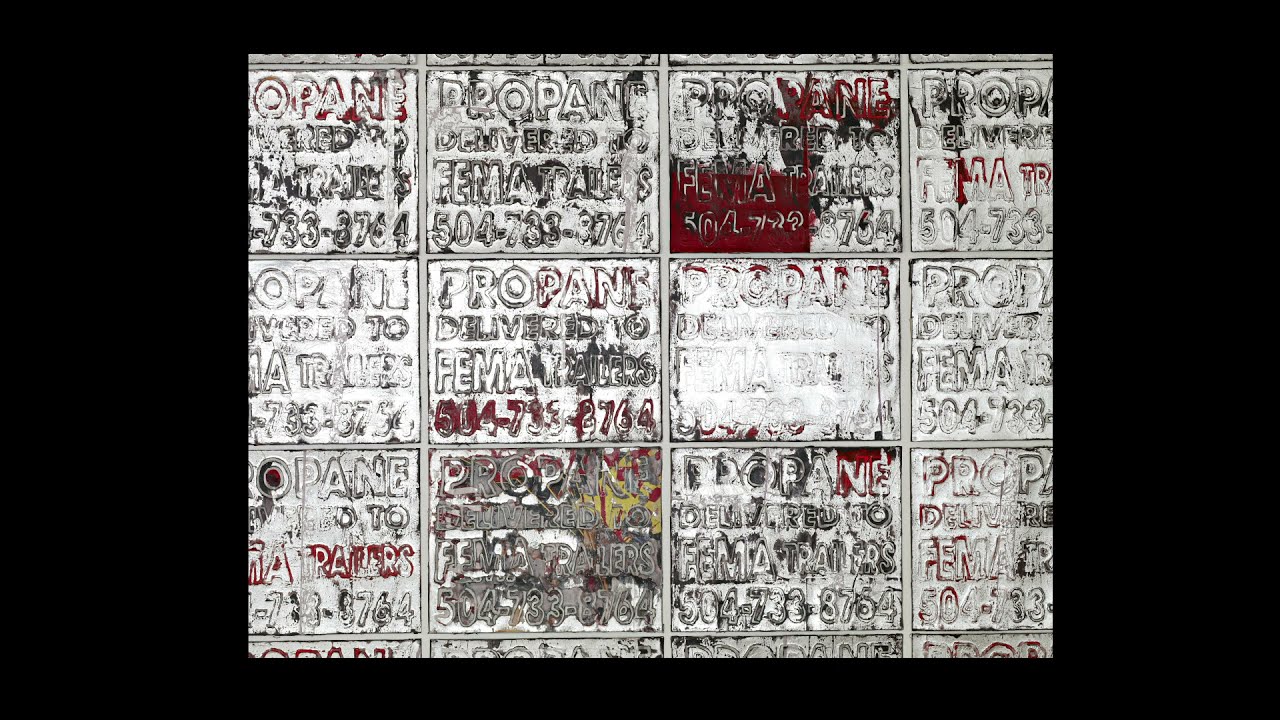 OPANE
VERED TO
MA TRAILERS
-733-8764
PROPANE
DELIVERED TO
FEMA TRAILERS
504-733-8764
PROPANE
DELIVERED TO
FEMA TRAILERS
504-733-8764
PROPA
DELIVERE
FEMA TR
504-733-
OPANE
VERED TO
MA TRAILERS
-733-8764
PROPANE
DELIVERED TO
FEMA TRAILERS
504-733-8764
PROPANE
DELIVERED TO
FEMA TRAILERS
504-733-8764
PROPA
DELIVERE
FEMA TR
504-733-
OPANE
VERED TO
MA TRAILERS
-733-8764
PROPANE
DELIVERED TO
FEMA TRAILERS
504-733-8764
PROPANE
DELIVERED TO
FEMA TRAILERS
504-733-8764
PROPA
DELIVERE
FEMA TR
504-733-